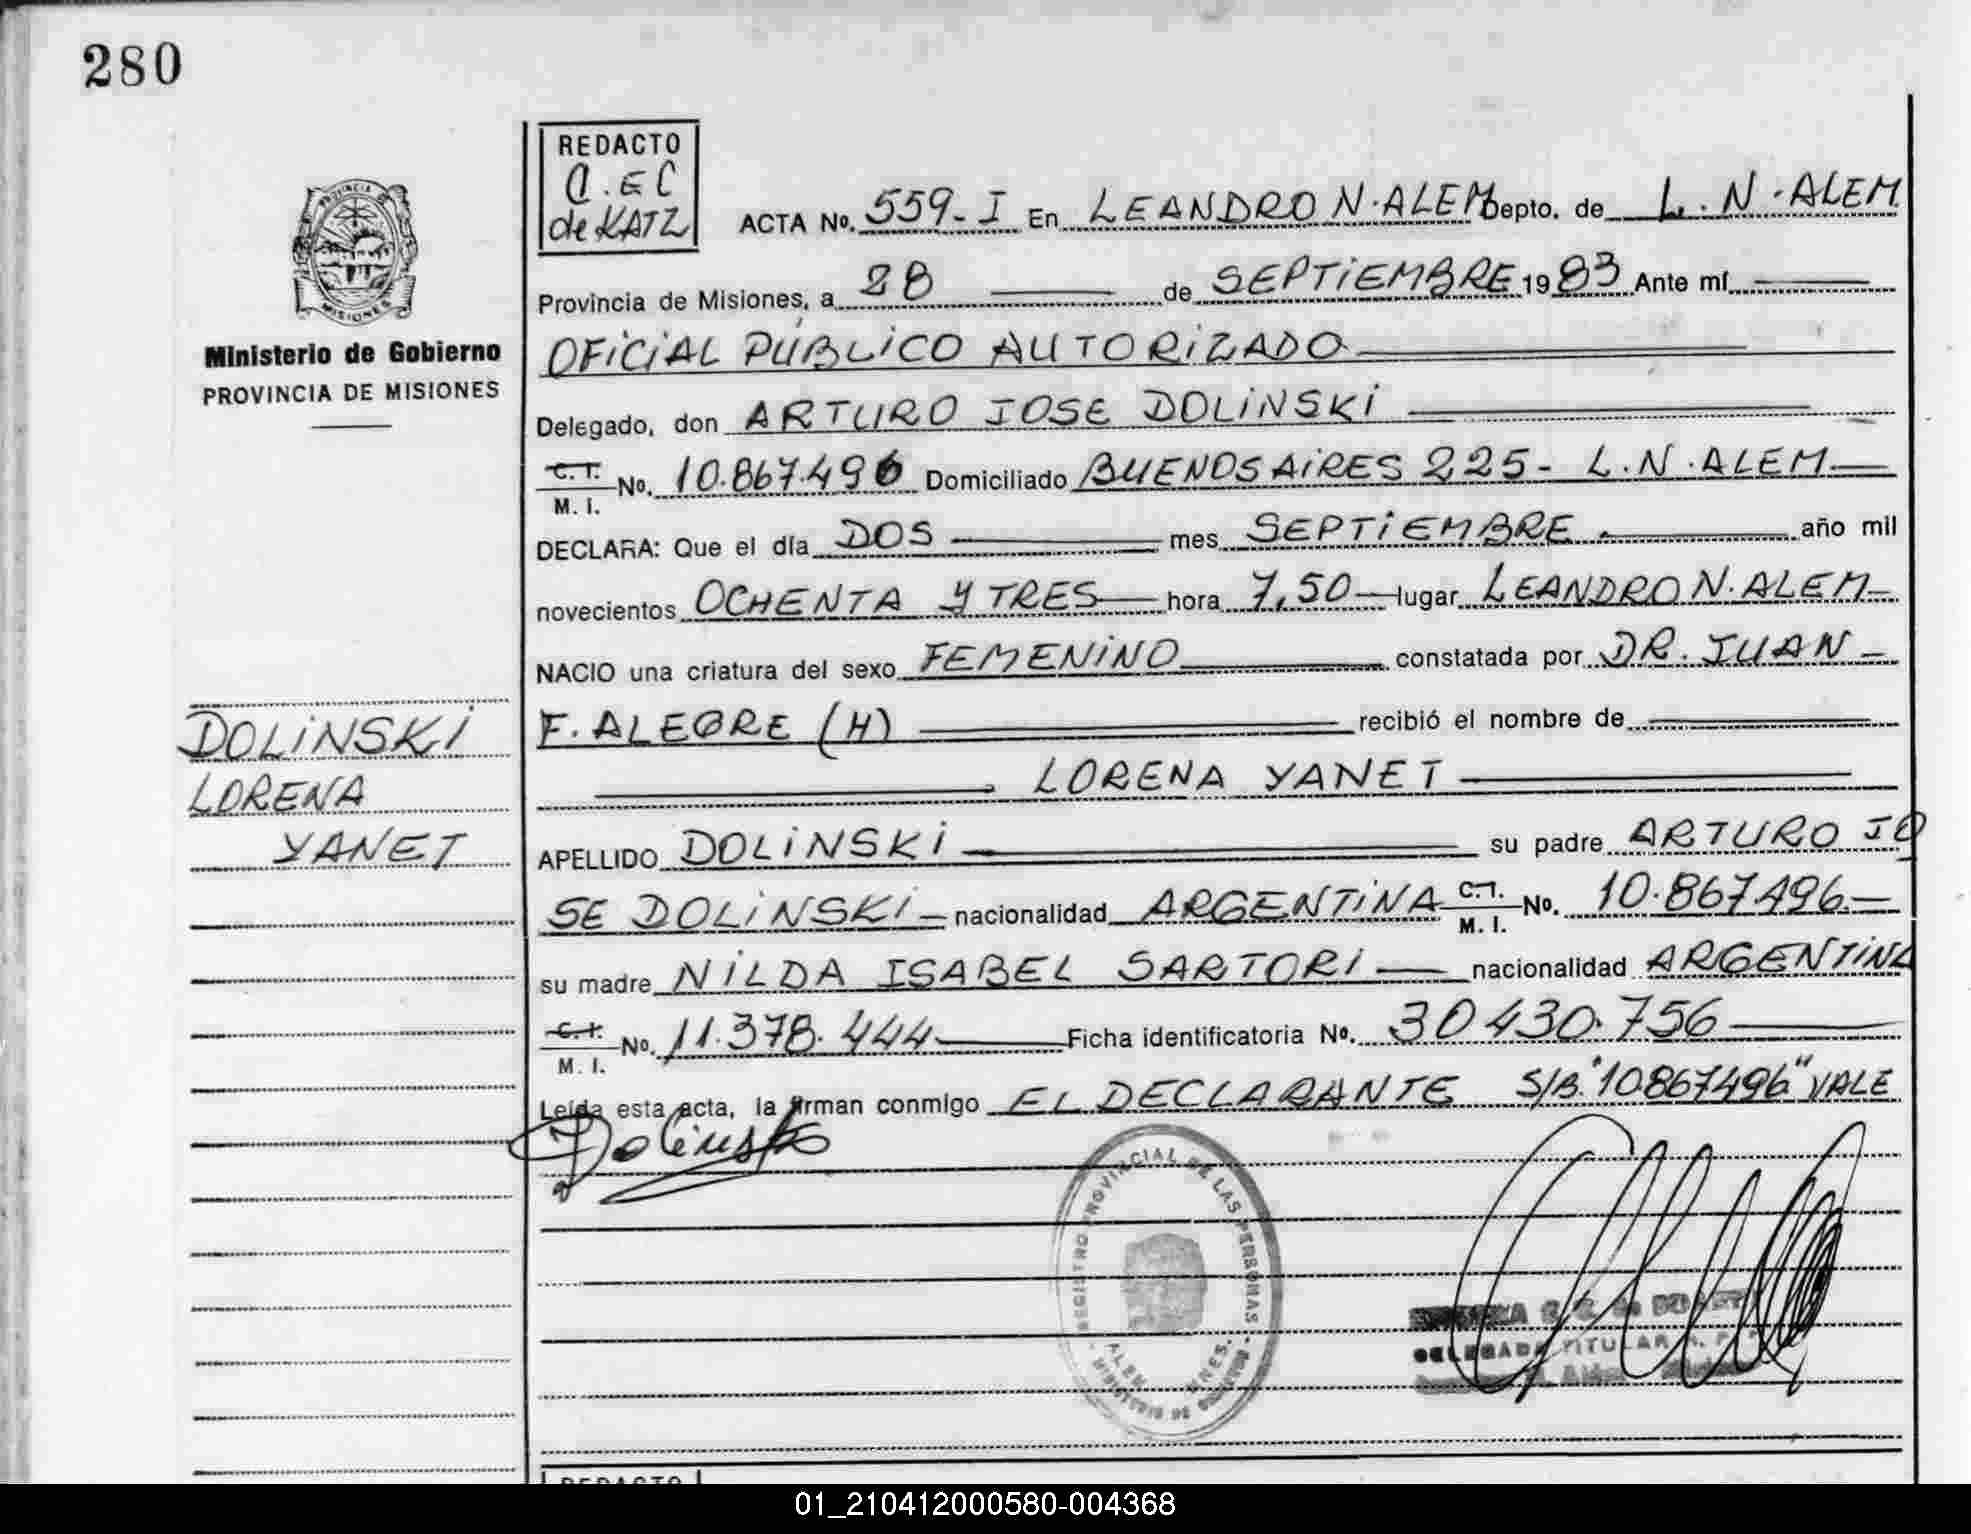 280
REDACTO
C.EC
de KATZ
PROVINCIA DE
MISIONES
Ministerio de Gobierno
PROVINCIA DE MISIONES
ACTA No. 559-I En LEANDRO N. ALEM Depto. de L. N. ALEM
Provincia de Misiones, a 28 de SEPTIEMBRE 1983 Ante mí
OFICIAL PÚBLICO AUTORIZADO
Delegado, don ARTURO JOSE DOLINSKI
C. I.
M. I. No. 10.867.496 Domiciliado BUENOS AIRES 225- L.N. ALEM
DECLARA: Que el día DOS mes SEPTIEMBRE año mil
novecientos OCHENTA Y TRES hora 7,50 lugar LEANDRO N. ALEM
NACIO una criatura del sexo FEMENINO constatada por DR. JUAN
F. ALEGRE (H) recibió el nombre de
LORENA YANET
DOLINSKI
LORENA
YANET
APELLIDO DOLINSKI su padre ARTURO JO
SE DOLINSKI nacionalidad ARGENTINA C. I. M. I. No. 10.867.496.-
su madre NILDA ISABEL SARTORI nacionalidad ARGENTINA
C. I.
M. I. No. 11.378.444 Ficha identificatoria No. 30430.756
Leída esta acta, la firman conmigo EL DECLARANTE S/B."10867496" VALE
Dolinski
REGISTRO PROVINCIAL DE LAS PERSONAS
ALEM MNES.
DELEGADA TITULAR
REDACTO
01_210412000580-004368